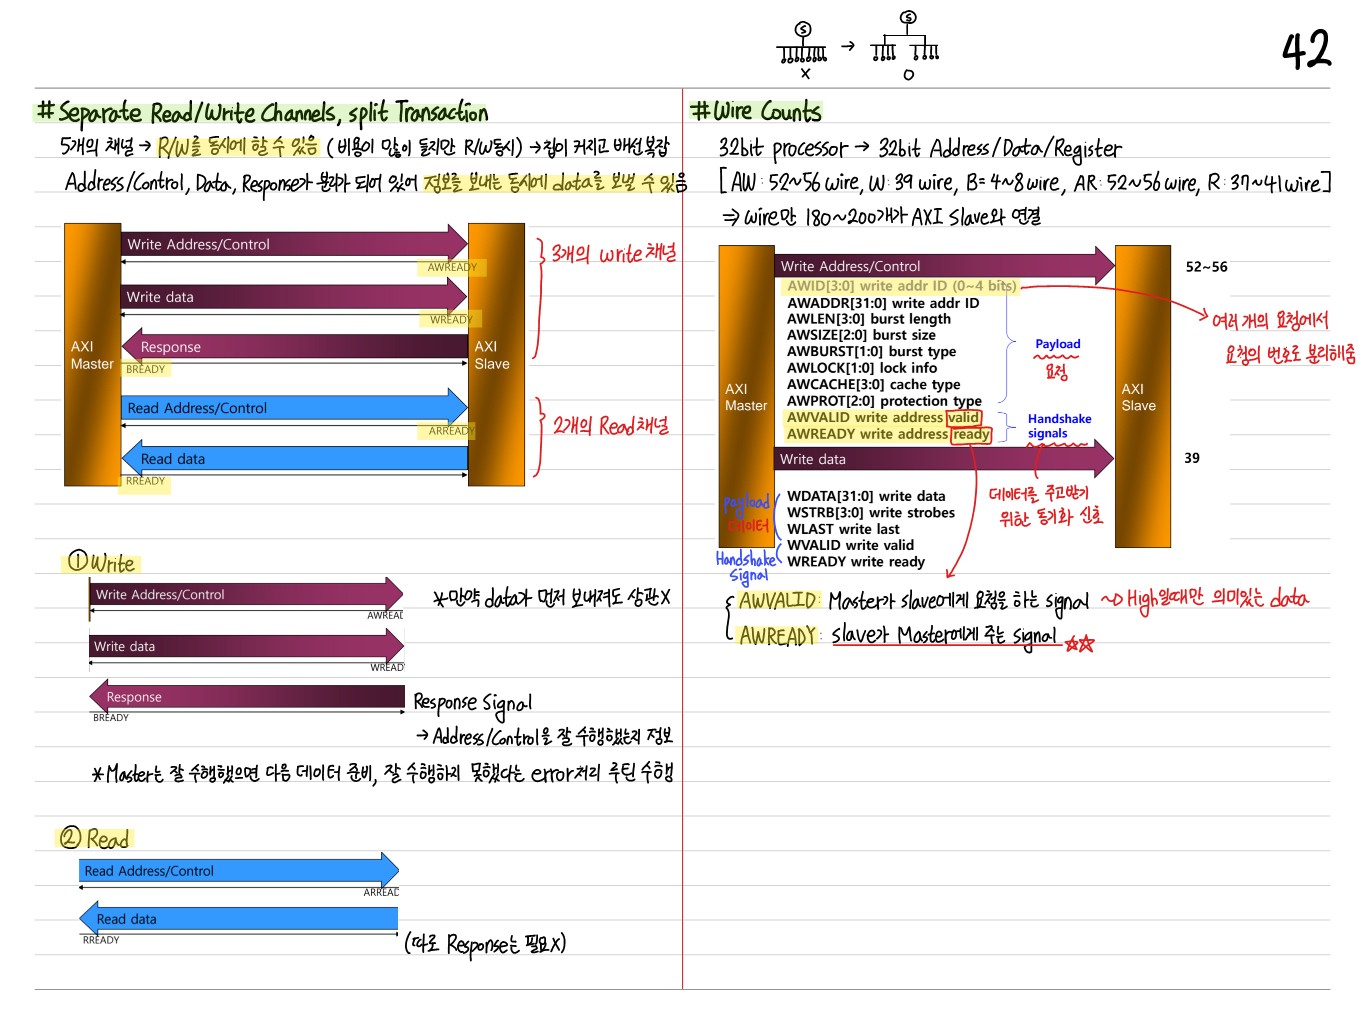 S → S
X O
42
# Separate Read/Write Channels, split Transaction
5개의 채널 → R/W를 동시에 할 수 있음 (비용이 많이 들지만 R/W동시) → 칩이 커지고 배선복잡
Address/Control, Data, Response가 분리가 되어 있어 정보를 보내는 동시에 data를 보낼 수 있음
AXI Master
AXI Slave
Write Address/Control
AWREADY
Write data
WREADY
Response
BREADY
3개의 write 채널
Read Address/Control
ARREADY
Read data
RREADY
2개의 Read채널
① Write
Write Address/Control
AWREAD
Write data
WREAD
Response
BREADY
*만약 data가 먼저 보내져도 상관X
Response Signal
→ Address/Control을 잘 수행했는지 정보
*Master는 잘 수행했으면 다음 데이터 준비, 잘 수행하지 못했다는 error처리 루틴 수행
② Read
Read Address/Control
ARREAD
Read data
RREADY
(따로 Response는 필요X)
# Wire Counts
32bit processor → 32bit Address/Data/Register
[AW: 52~56 wire, W: 39 wire, B= 4~8 wire, AR: 52~56 wire, R: 37~41 wire]
⇒ wire만 180~200개가 AXI Slave와 연결
AXI Master
AXI Slave
Write Address/Control
52~56
AWID[3:0] write addr ID (0~4 bits)
AWADDR[31:0] write addr ID
AWLEN[3:0] burst length
AWSIZE[2:0] burst size
AWBURST[1:0] burst type
AWLOCK[1:0] lock info
AWCACHE[3:0] cache type
AWPROT[2:0] protection type
AWVALID write address valid
AWREADY write address ready
Payload
요청
Handshake signals
여러 개의 요청에서
요청의 번호로 분리해줌
Write data
39
데이터를 주고받기
위한 동기화 신호
WDATA[31:0] write data
WSTRB[3:0] write strobes
WLAST write last
WVALID write valid
WREADY write ready
Payload
데이터
Handshake
Signal
AWVALID: Master가 slave에게 요청을 하는 signal ~> High일때만 의미있는 data
AWREADY: slave가 Master에게 주는 signal ☆☆